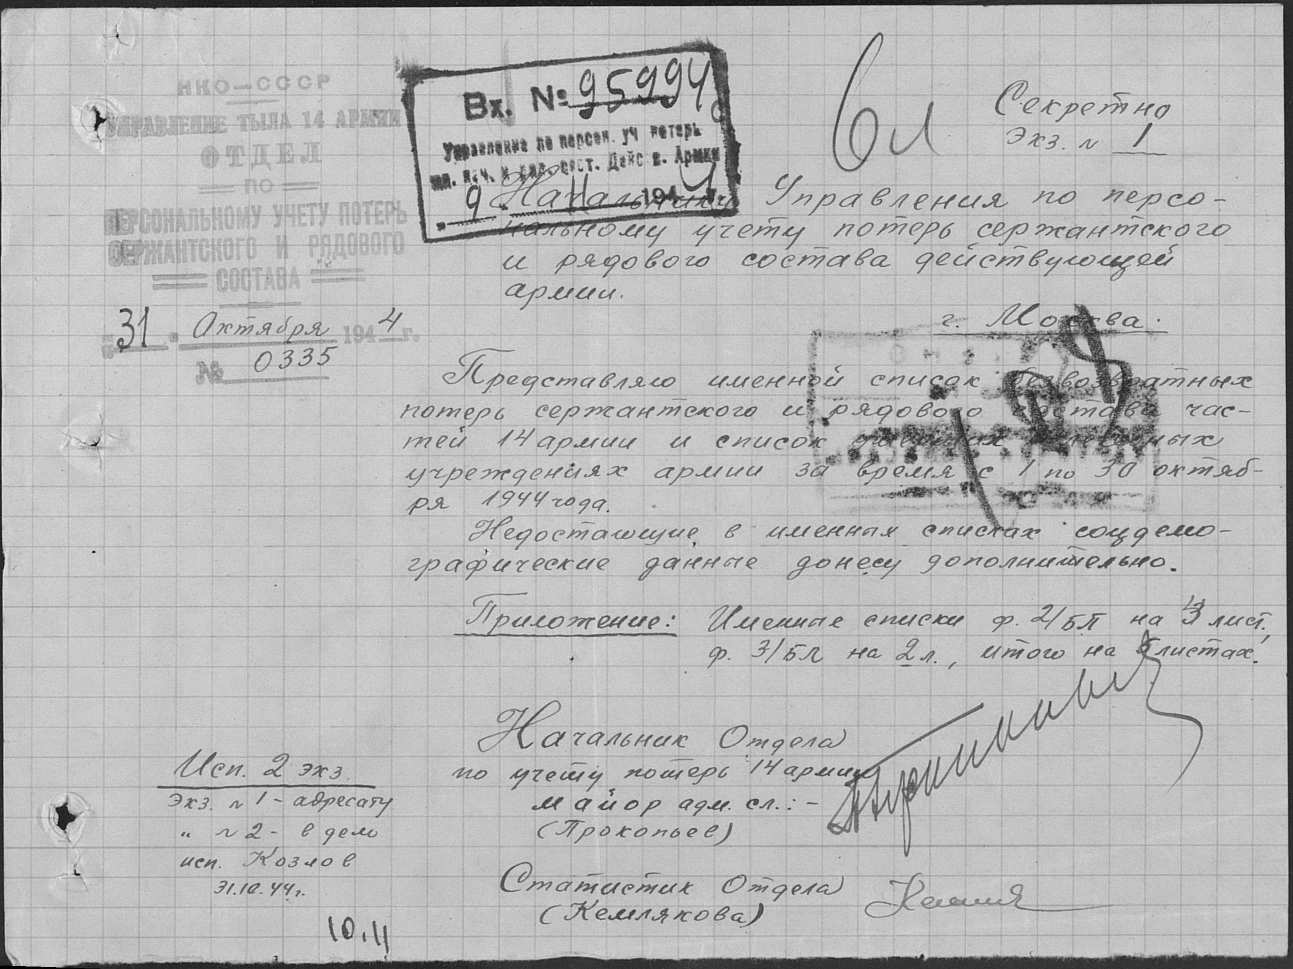 НКО-СССР
УПРАВЛЕНИЕ ТЫЛА 14 АРМИИ
ОТДЕЛ
ПО
ПЕРСОНАЛЬНОМУ УЧЕТУ ПОТЕРЬ
СЕРЖАНТСКОГО И РЯДОВОГО
СОСТАВА
"31" Октября 1944 г.
№ 0335
Вх. № 95994
Управление по персон. уч. потерь
мл. нач. и ряд. сост. Дейс в. Армии
" 9 " 11 194 г.
6л
Секретно
Экз. № 1
Начальнику Управления по персо-
нальному учету потерь сержантского
и рядового состава действующей
армии.
г. Москва.
Представляю именной список безвозвратных
потерь сержантского и рядового состава час-
тей 14 армии и список умерших в лечебных
учреждениях армии за время с 1 по 30 октяб-
ря 1944 года.
Недостающие в именных списках соцдемо-
графические данные донесу дополнительно.
Приложение: Именные списки ф. 2/БП на лист.,
ф. 3/БП на 2 л., итого на листах.
Начальник Отдела
по учету потерь 14 армии
майор адм. сл.: -
(Прокопьев)
Статистик Отдела
(Кемлякова)
Исп. 2 экз.
Экз. № 1 - адресату
" № 2 - в дело
исп. Козлов
31.10.44г.
10.11